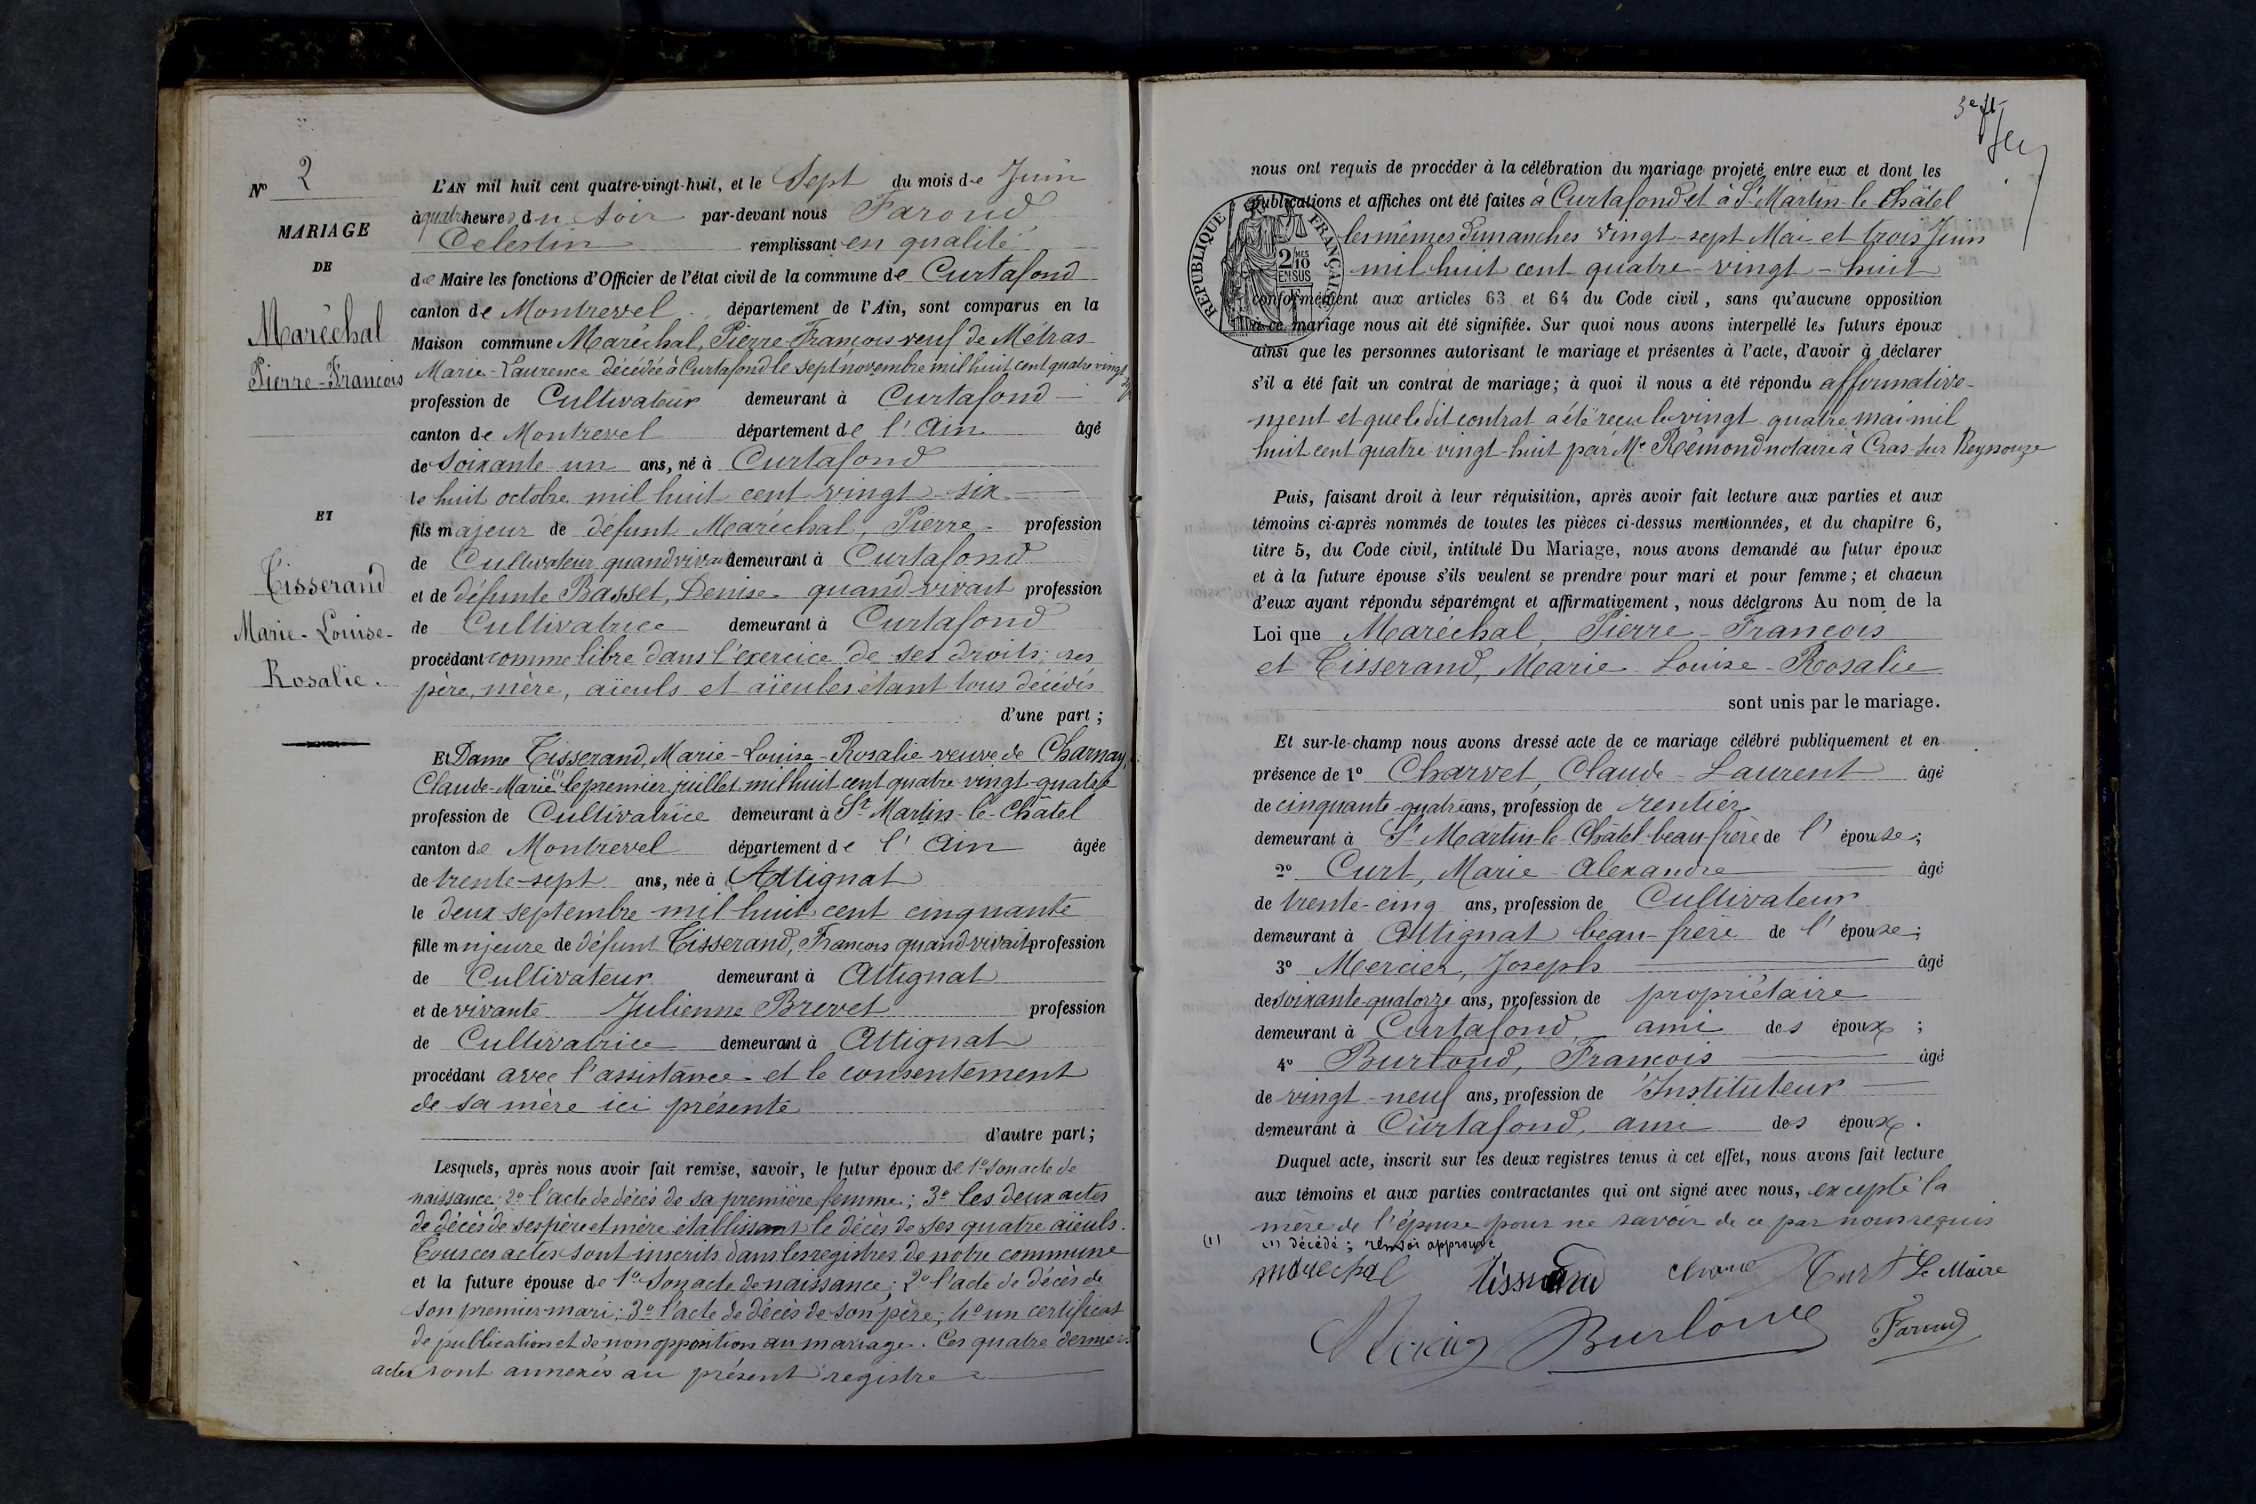 N° 2
MARIAGE
DE
Maréchal
Pierre-François
ET
Tisserand
Marie-Louise-
Rosalie.
L'AN mil huit cent quatre-vingt-huit, et le Sept du mois de Juin
à quatre heures du soir par-devant nous Faroud
Celestin remplissant en qualité
de Maire les fonctions d'Officier de l'état civil de la commune de Curtafond
canton de Montrevel département de l'Ain, sont comparus en la
Maison commune Maréchal, Pierre-François veuf de Métras
Marie-Laurence décédée à Curtafond le sept novembre mil huit cent quatre vingt
profession de Cultivateur demeurant à Curtafond
canton de Montrevel département de l'Ain âgé
de soixante un ans, né à Curtafond
le huit octobre mil huit cent vingt-six
fils majeur de défunt Maréchal, Pierre profession
de Cultivateur quand vivait demeurant à Curtafond
et de défunte Basset, Denise quand vivait profession
de Cultivatrice demeurant à Curtafond
procédant comme libre dans l'exercice de ses droits; ses
père, mère, aïeuls et aïeules étant tous décédés
d'une part;
Et Dame Tisserand, Marie-Louise-Rosalie veuve de Charnay,
Claude-Marie (1) le premier juillet mil huit cent quatre-vingt-quatre
profession de Cultivatrice demeurant à St Martin-le-Châtel
canton de Montrevel département de l'Ain âgée
de trente-sept ans, née à Attignat
le deux septembre mil huit cent cinquante
fille majeure de défunt Tisserand, François quand vivait profession
de Cultivateur demeurant à Attignat
et de vivante Julienne Brevet profession
de Cultivatrice demeurant à Attignat
procédant avec l'assistance et le consentement
de sa mère ici présente
d'autre part;
Lesquels, après nous avoir fait remise, savoir, le futur époux de 1° son acte de
naissance; 2° l'acte de décès de sa première femme; 3° les deux actes
de décès de ses père et mère établissant le décès de ses quatre aïeuls.
Tous ces actes sont inscrits dans les registres de notre commune
et la future épouse de 1° son acte de naissance; 2° l'acte de décès de
son premier mari; 3° l'acte de décès de son père; 4° un certificat
de publication et de non opposition au mariage. Ces quatre derniers
actes sont annexés au présent registre
3e ft
nous ont requis de procéder à la célébration du mariage projeté entre eux et dont les
publications et affiches ont été faites à Curtafond et à St Martin-le-Châtel
les mêmes dimanches vingt-sept Mai et trois Juin
mil huit cent quatre-vingt-huit
RÉPUBLIQUE FRANÇAISE
2/10 MES
EN SUS
conformément aux articles 63 et 64 du Code civil, sans qu'aucune opposition
à ce mariage nous ait été signifiée. Sur quoi nous avons interpellé les futurs époux
ainsi que les personnes autorisant le mariage et présentes à l'acte, d'avoir à déclarer
s'il a été fait un contrat de mariage; à quoi il nous a été répondu affirmative-
ment et que le dit contrat a été reçu le vingt quatre mai mil
huit cent quatre vingt-huit par Me Rémond notaire à Cras-sur Reyssouze
Puis, faisant droit à leur réquisition, après avoir fait lecture aux parties et aux
témoins ci-après nommés de toutes les pièces ci-dessus mentionnées, et du chapitre 6,
titre 5, du Code civil, intitulé Du Mariage, nous avons demandé au futur époux
et à la future épouse s'ils veulent se prendre pour mari et pour femme; et chacun
d'eux ayant répondu séparément et affirmativement, nous déclarons Au nom de la
Loi que Maréchal, Pierre-François
et Tisserand, Marie-Louise-Rosalie
sont unis par le mariage.
Et sur-le-champ nous avons dressé acte de ce mariage célébré publiquement et en
présence de 1° Charvet, Claude-Laurent âgé
de cinquante-quatre ans, profession de rentier
demeurant à St Martin-le-Châtel beau-frère de l'épouse;
2° Curt, Marie-Alexandre âgé
de trente-cinq ans, profession de Cultivateur
demeurant à Attignat beau-frère de l'épouse;
3° Mercier, Joseph âgé
de soixante-quatorze ans, profession de propriétaire
demeurant à Curtafond ami des époux;
4° Burloud, François âgé
de vingt-neuf ans, profession de Instituteur
demeurant à Curtafond, ami des époux.
Duquel acte, inscrit sur les deux registres tenus à cet effet, nous avons fait lecture
aux témoins et aux parties contractantes qui ont signé avec nous, excepté la
mère de l'épouse pour ne savoir de ce par nous requis
(1) (1) décédé; renvoi approuvé
marechal Tisserand Curt Le Maire
Mercier Burloud Faroud